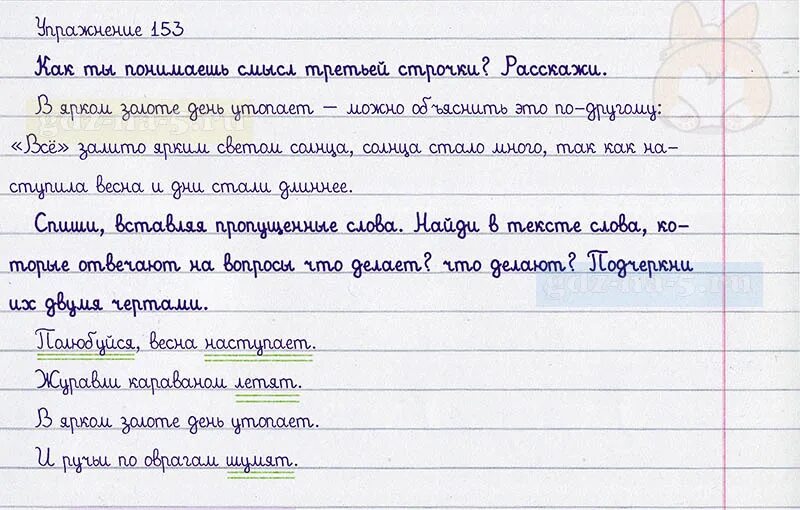 Упражнение 153
Как ты понимаешь смысл третьей строчки? Расскажи.
В ярком золоте день утопает – можно объяснить это по-другому:
«Всё» залито ярким светом солнца, солнца стало много, так как на-
ступила весна и дни стали длиннее.
Спиши, вставляя пропущенные слова. Найди в тексте слова, ко-
торые отвечают на вопросы что делает? что делают? Подчеркни
их двумя чертами.
Полюбуйся, весна наступает.
Журавли караваном летят.
В ярком золоте день утопает.
И ручьи по оврагам шумят.
gdz-na-5.ru
gdz-na-5.ru